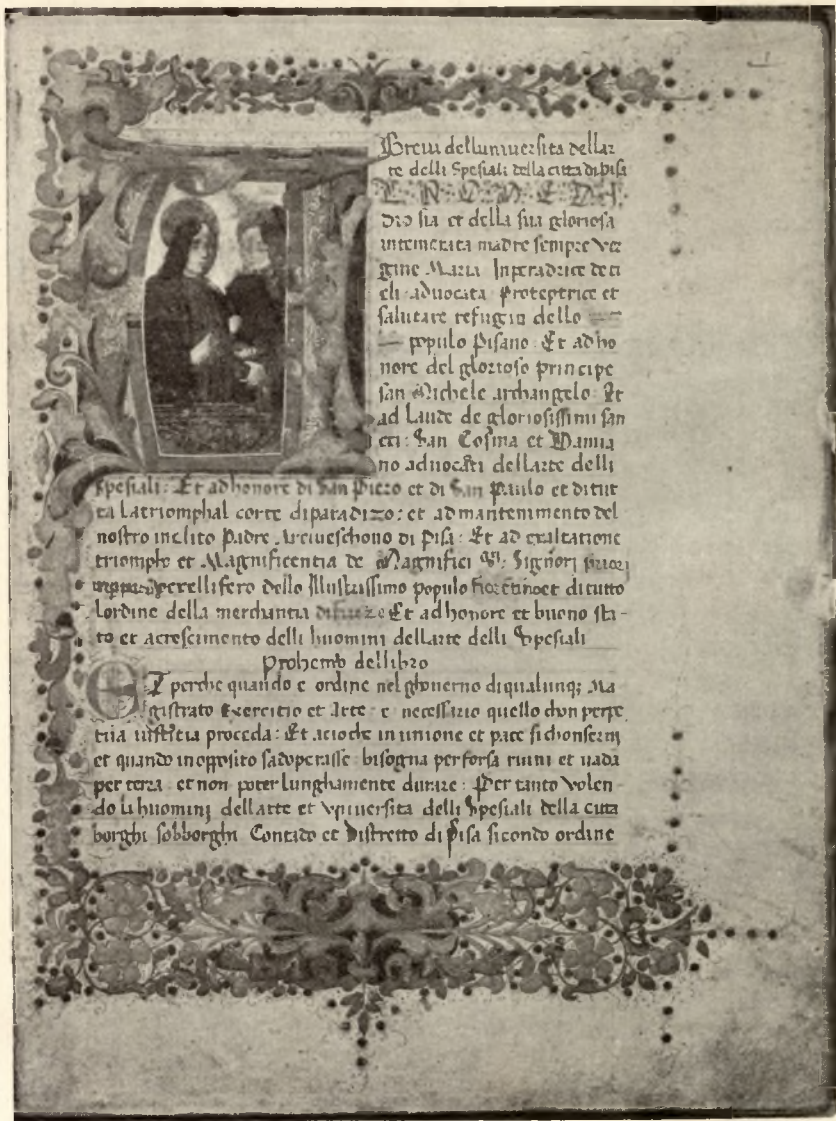 Breui delluniuersita dellar
te delli Spesiali della citta di pisa
L N O D E D I
Dio sia et della sua gloriosa
intemerata madre sempre ver
gine Maria Inperadrice de ci
eli aduocata Proteptrice et
salutare refugio dello
populo Pisano: Et ad ho
nore del glorioso principe
san Michele archangelo: Et
ad Laude de gloriosissimi san
cti: San Cosma et Damia
no aduocati dellarte delli
spesiali: Et ad honore di San Piero et di San Paulo et ditut
ta latriomphal corte diparadizo: et ad mantenimento del
nostro inclito Padre Arciueschouo di Pisa: Et ad exaltatione
triompho et Magnificentia de Magnifici Signori priori
vexellifero dello Illustrissimo populo fiorentino et di tutto
lordine della merchantia Et ad honore et buono sta-
to et acrescimento delli huomini dellarte delli Spesiali
Prohemio dellibro
ET perche quando e ordine nel ghouerno diqualunq; Ma
gistrato Exercitio et Arte e necessario quello chon perpe
tua iustitia proceda: Et acioche in unione et pace si chonserui
et quando in opposito sadoperasse bisogna per forsa ruini et uada
per terra et non poter lunghamente durare: Per tanto volen
do li huomini dellarte et vniuersita delli Spesiali della citta
borghi sobborghi Contado et Distretto di Pisa sicondo ordine